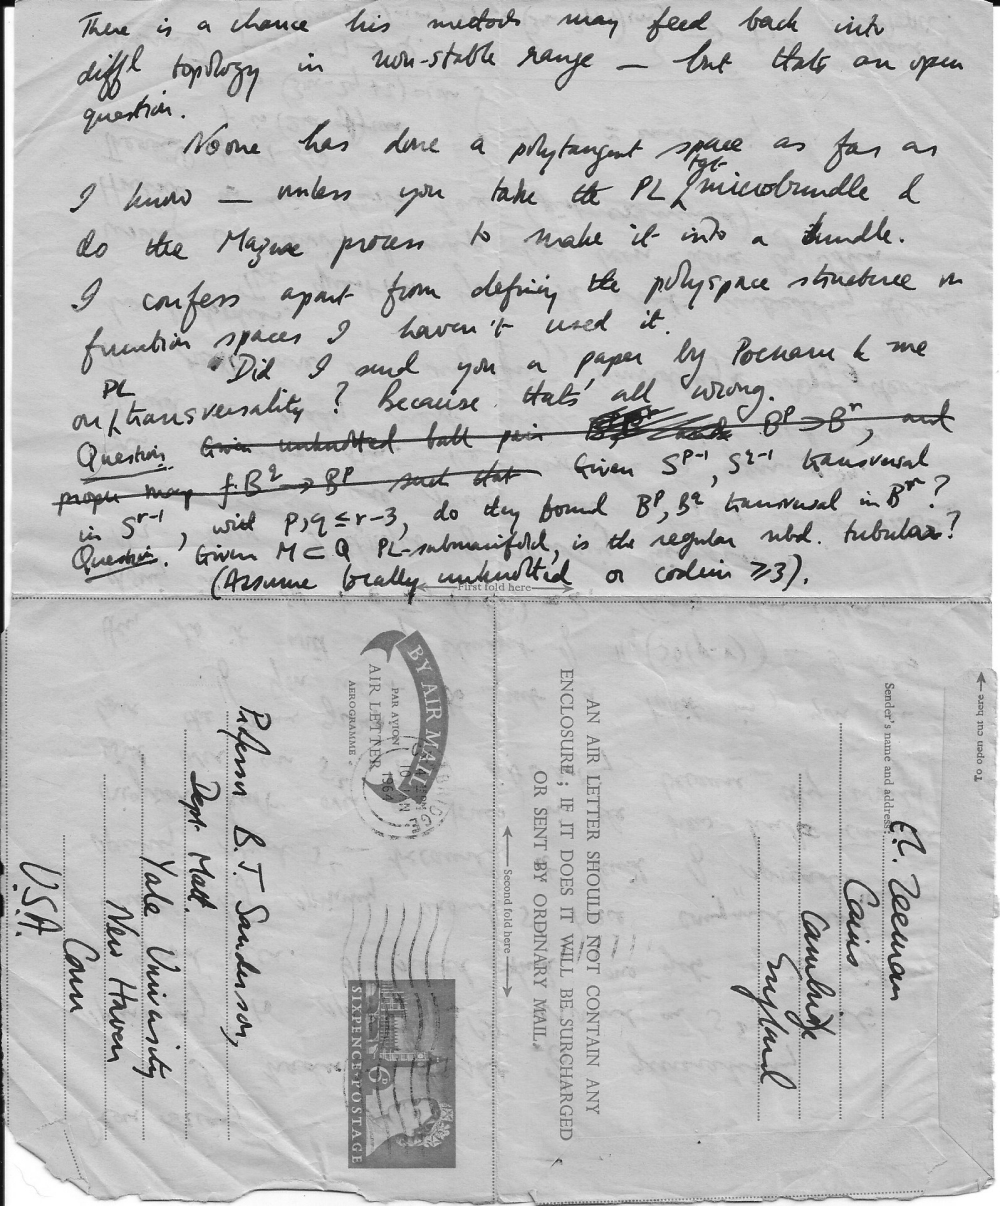 There is a chance his methods may feed back into
diffl topology in non-stable range — but thats an open
question.
Noone has done a polytangent space as far as
I know — unless you take the PL tgt microbundle &
do the Mazur process to make it into a bundle.
I confess apart from defining the polyspace structure on
function spaces I haven't used it.
Did I send you a paper by & me
on PL transversality? Because thats all wrong.
Question Given unknotted ball pair B^p → B^r, and
proper map f: B^q → B^p such that Given S^p-1, S^q-1 transversal
in S^r-1, with p,q ≤ r-3, do they bound B^p, B^q transversal in B^r?
Question. Given M ⊂ Q PL-submanifold, is the regular nbd. tubular?
(Assume locally unknotted or codim ≥3).
First fold here
BY AIR MAIL
PAR AVION
AIR LETTER
AEROGRAMME
1964
SIXPENCE POSTAGE
6
Professor B. J. Sanderson,
Dept. Math.
Yale University
New Haven
Conn
U.S.A.
Second fold here
AN AIR LETTER SHOULD NOT CONTAIN ANY
ENCLOSURE; IF IT DOES IT WILL BE SURCHARGED
OR SENT BY ORDINARY MAIL.
To open cut here
Sender's name and address:
E.C. Zeeman
Caius
Cambridge
England